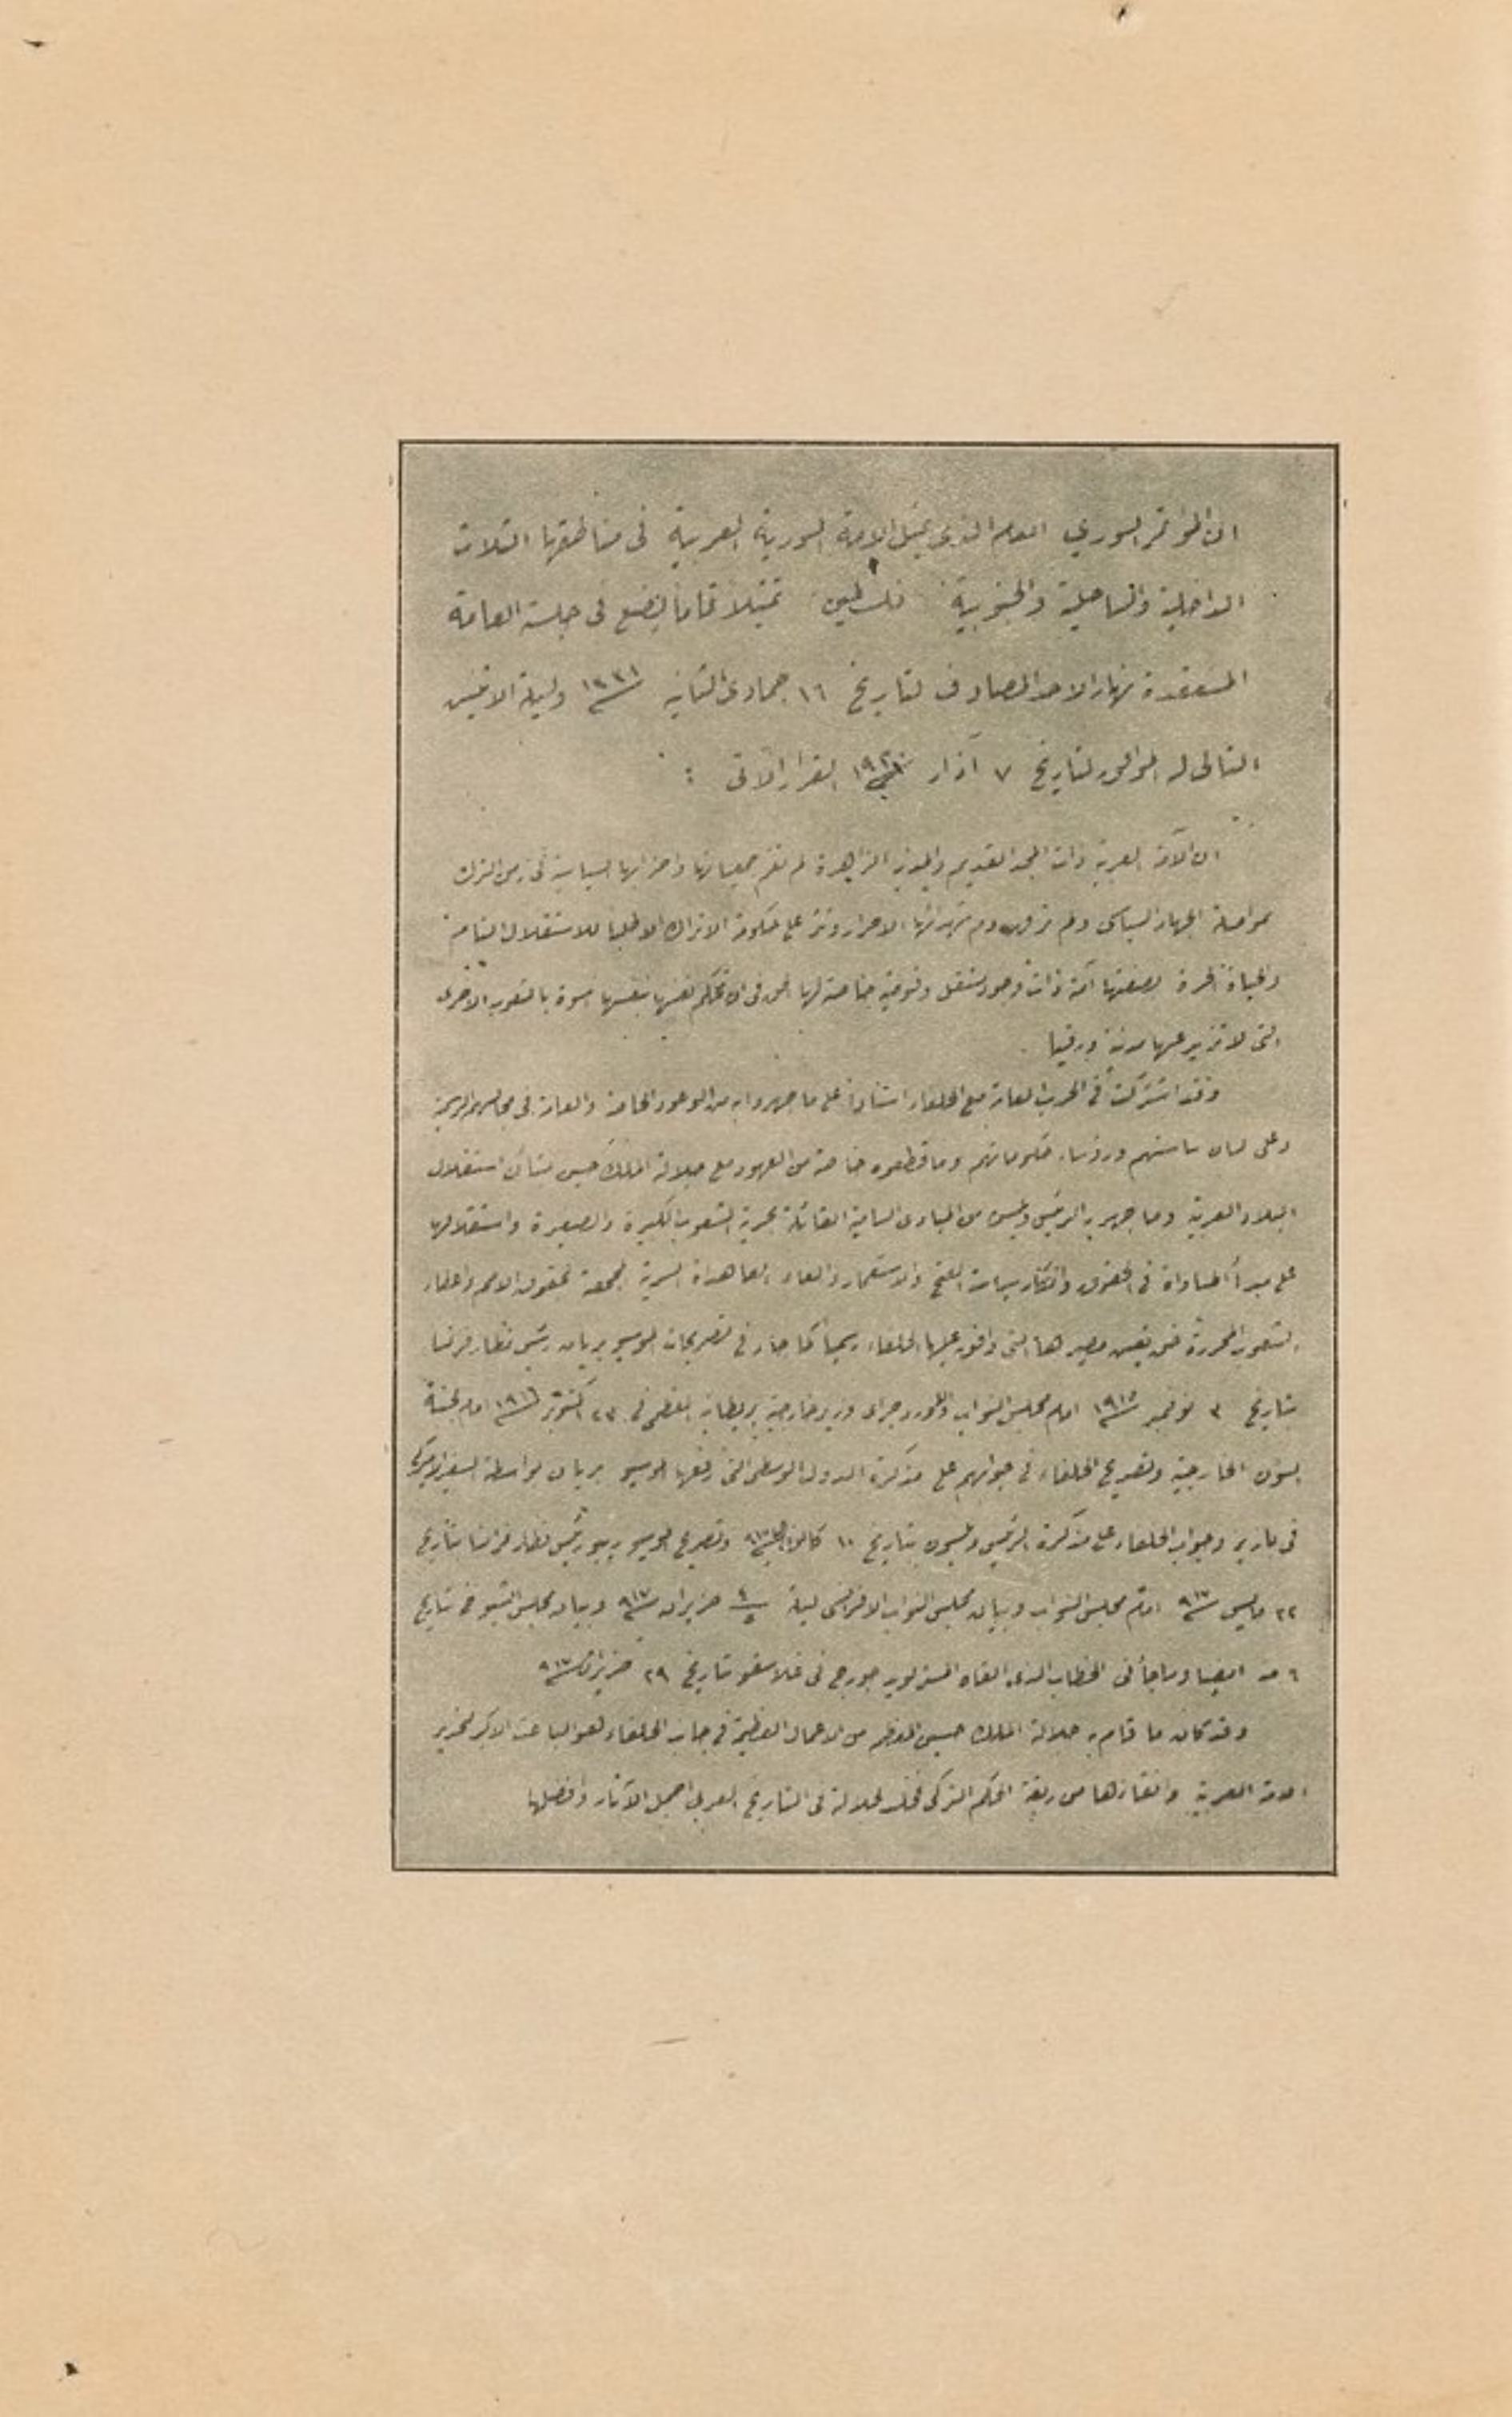 ان المؤتمر السوري العام الذي يمثل الامة السورية العربية في مناطقها الثلاث
الداخلية والساحلية والجنوبية فلسطين تمثيلاً تاماً يضع في جلسته العامة
المنعقدة نهار الاحد المصادف لتاريخ ١٦ جمادى الثانية وليلة الاثنين
التالي له الموافق لتاريخ ٧ آذار القرار الآتي :
ان الأمة العربية ذات المجد القديم والمدنية الزاهرة لم تقم جمعياتها واحزابها السياسية في زمن الترك
بمواصلة الجهاد السياسي ولم ترق دم شهدائها الاحرار وتثر على حكومة الاتراك الا طلبا للاستقلال التام
والحياة الحرة بصفتها أمة ذات وجود مستقل وقومية خاصة لها الحق في ان تحكم نفسها بنفسها اسوة بالشعوب الاخرى
التي لا تزيد عنها مدنية ورقيا .
وقد اشتركت في الحرب العامة مع الحلفاء استناداً على ما جهروا به من الوعود الخاصة والعامة في مجالسهم الرسمية
وعلى لسان ساستهم ورؤساء حكوماتهم وما قطعوه خاصة من العهود مع جلالة الملك حسين بشأن استقلال
البلاد العربية وما جهر به الرئيس ولسن من المبادئ السامية القائلة بحرية الشعوب الكبيرة والصغيرة واستقلالها
على مبدأ المساواة في الحقوق وانكار سياسة الفتح والاستعمار والغاء المعاهدات السرية المجحفة بحقوق الامم واعطاء
الشعوب المحررة حق تعيين مصيرها التي وافق عليها الحلفاء رسمياً كما جاء في تصريحات الموسيو بريان رئيس نظار فرنسا
بتاريخ ٣ نوفمبر ١٩١٥ امام مجلس النواب واللورد جراي وزير خارجية بريطانيا العظمى في ٢٣ اكتوبر ١٩١٦ امام لجنة
الشؤون الخارجية وتصريح الحلفاء في جوابهم على مذكرة الدول الوسطى التي رفعها الموسيو بريان بواسطة السفير الاميركي
في باريز وجواب الحلفاء على مذكرة الرئيس ولسون بتاريخ ١٠ وتصريح الموسيو ريبو رئيس نظار فرنسا بتاريخ
٢٢ مايس ٩١٧ امام مجلس النواب وبيان مجلس النواب الافرنسي ليلة ٤/٥ حزيران ٩١٧ وبيان مجلس الشيوخ في تاريخ
٦ منه ايضا وما جاء في الخطاب الذي القاه المستر لويد جورج في غلاسغو بتاريخ ٢٩ حزيران ٩١٧
وقد كان ما قام به جلالة الملك حسين المعظم من الاعمال العظيمة في جانب الحلفاء لهو الباعث الاكبر لتحرير
الامة العربية وانقاذها من ربقة الحكم التركي فخلد لجلالته في التاريخ العربي اجمل الآثار وافضلها